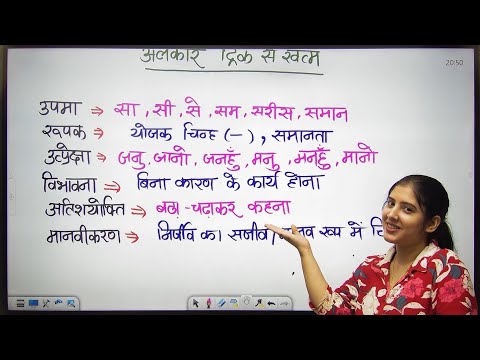 अलंकार ट्रिक से खत्म
20:50
उपमा ⇒ सा, सी, से, सम, सरीस, समान
रूपक ⇒ योजक चिन्ह (-), समानता
उत्प्रेक्षा ⇒ जनु, जानो, जनहुँ, मनु, मनहुँ, मानो
विभावना ⇒ बिना कारण के कार्य होना
अतिशयोक्ति ⇒ बढ़ा-चढ़ाकर कहना
मानवीकरण ⇒ निर्जीव का सजीव/ रूप में